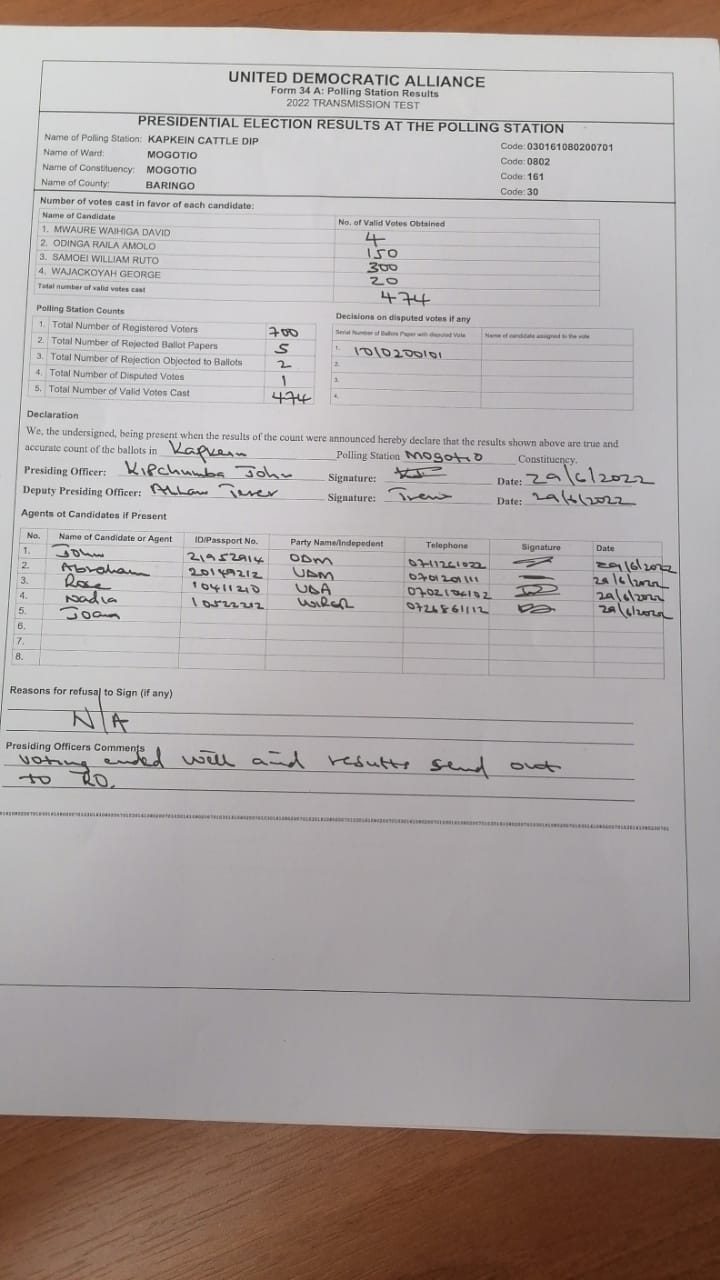 UNITED DEMOCRATIC ALLIANCE
Form 34 A: Polling Station Results
2022 TRANSMISSION TEST
PRESIDENTIAL ELECTION RESULTS AT THE POLLING STATION
Name of Polling Station: KAPKEIN CATTLE DIP Code: 030161080200701
Name of Ward: MOGOTIO Code: 0802
Name of Constituency: MOGOTIO Code: 161
Name of County: BARINGO Code: 30
Number of votes cast in favor of each candidate:
Name of Candidate No. of Valid Votes Obtained
1. MWAURE WAIHIGA DAVID 4
2. ODINGA RAILA AMOLO 150
3. SAMOEI WILLIAM RUTO 300
4. WAJACKOYAH GEORGE 20
Total number of valid votes cast 474
Polling Station Counts Decisions on disputed votes if any
Serial Number of Ballots Paper with disputed Vote Name of candidate assigned to the vote
1. Total Number of Registered Voters 700
2. Total Number of Rejected Ballot Papers 5 1. 1010200101
3. Total Number of Rejection Objected to Ballots 2 2.
4. Total Number of Disputed Votes 1 3.
5. Total Number of Valid Votes Cast 474 4.
Declaration
We, the undersigned, being present when the results of the count were announced hereby declare that the results shown above are true and
accurate count of the ballots in Kapkein Polling Station Mogotio Constituency.
Presiding Officer: Kipchumba John Signature: Date: 29/6/2022
Deputy Presiding Officer: Allan Signature: Date: 29/6/2022
Agents ot Candidates if Present
No. Name of Candidate or Agent ID/Passport No. Party Name/Indepedent Telephone Signature Date
1. John 21952914 ODM 0711261022 29/6/2022
2. Abraham 20149212 UDM 0701201111 29/6/2022
3. Rose 10411210 UDA 0702104102 29/6/2022
4. Nadia 10522212 0726861112 29/6/2022
5. Joan
6.
7.
8.
Reasons for refusal to Sign (if any)
N/A
Presiding Officers Comments
Voting ended well and results send out
to RO.